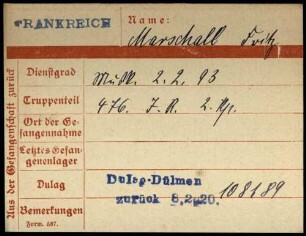 FRANKREICH
Name:
Marschall Fritz
Aus der Gefangenschaft zurück
Dienstgrad
Musk. 2.2.93
Truppenteil
476. J.R. 2. Kp.
Ort der Ge-
fangennahme
Letztes Gefan-
genenlager
Dulag
Dulag-Dülmen
zurück 8.2.20. 108189
Bemerkungen
Form. 687.